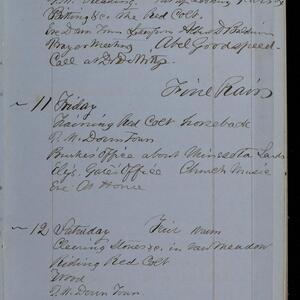 Bitting &c. the Red Colt.
Eve Down Town
Prayer Meeting Abel Goodspeed
Call at Dr
Fine Rain
~ 11 Friday
Training Red Colt horseback
P.M. Down Town
Burke's Office about Minnesota Lands
Ely's Gate's Office Church Music
Eve At Home
~ 12 Saturday Fair warm
Clearing Stones &c. in new Meadow
Riding Red Colt
Wood
P.M. Down Town